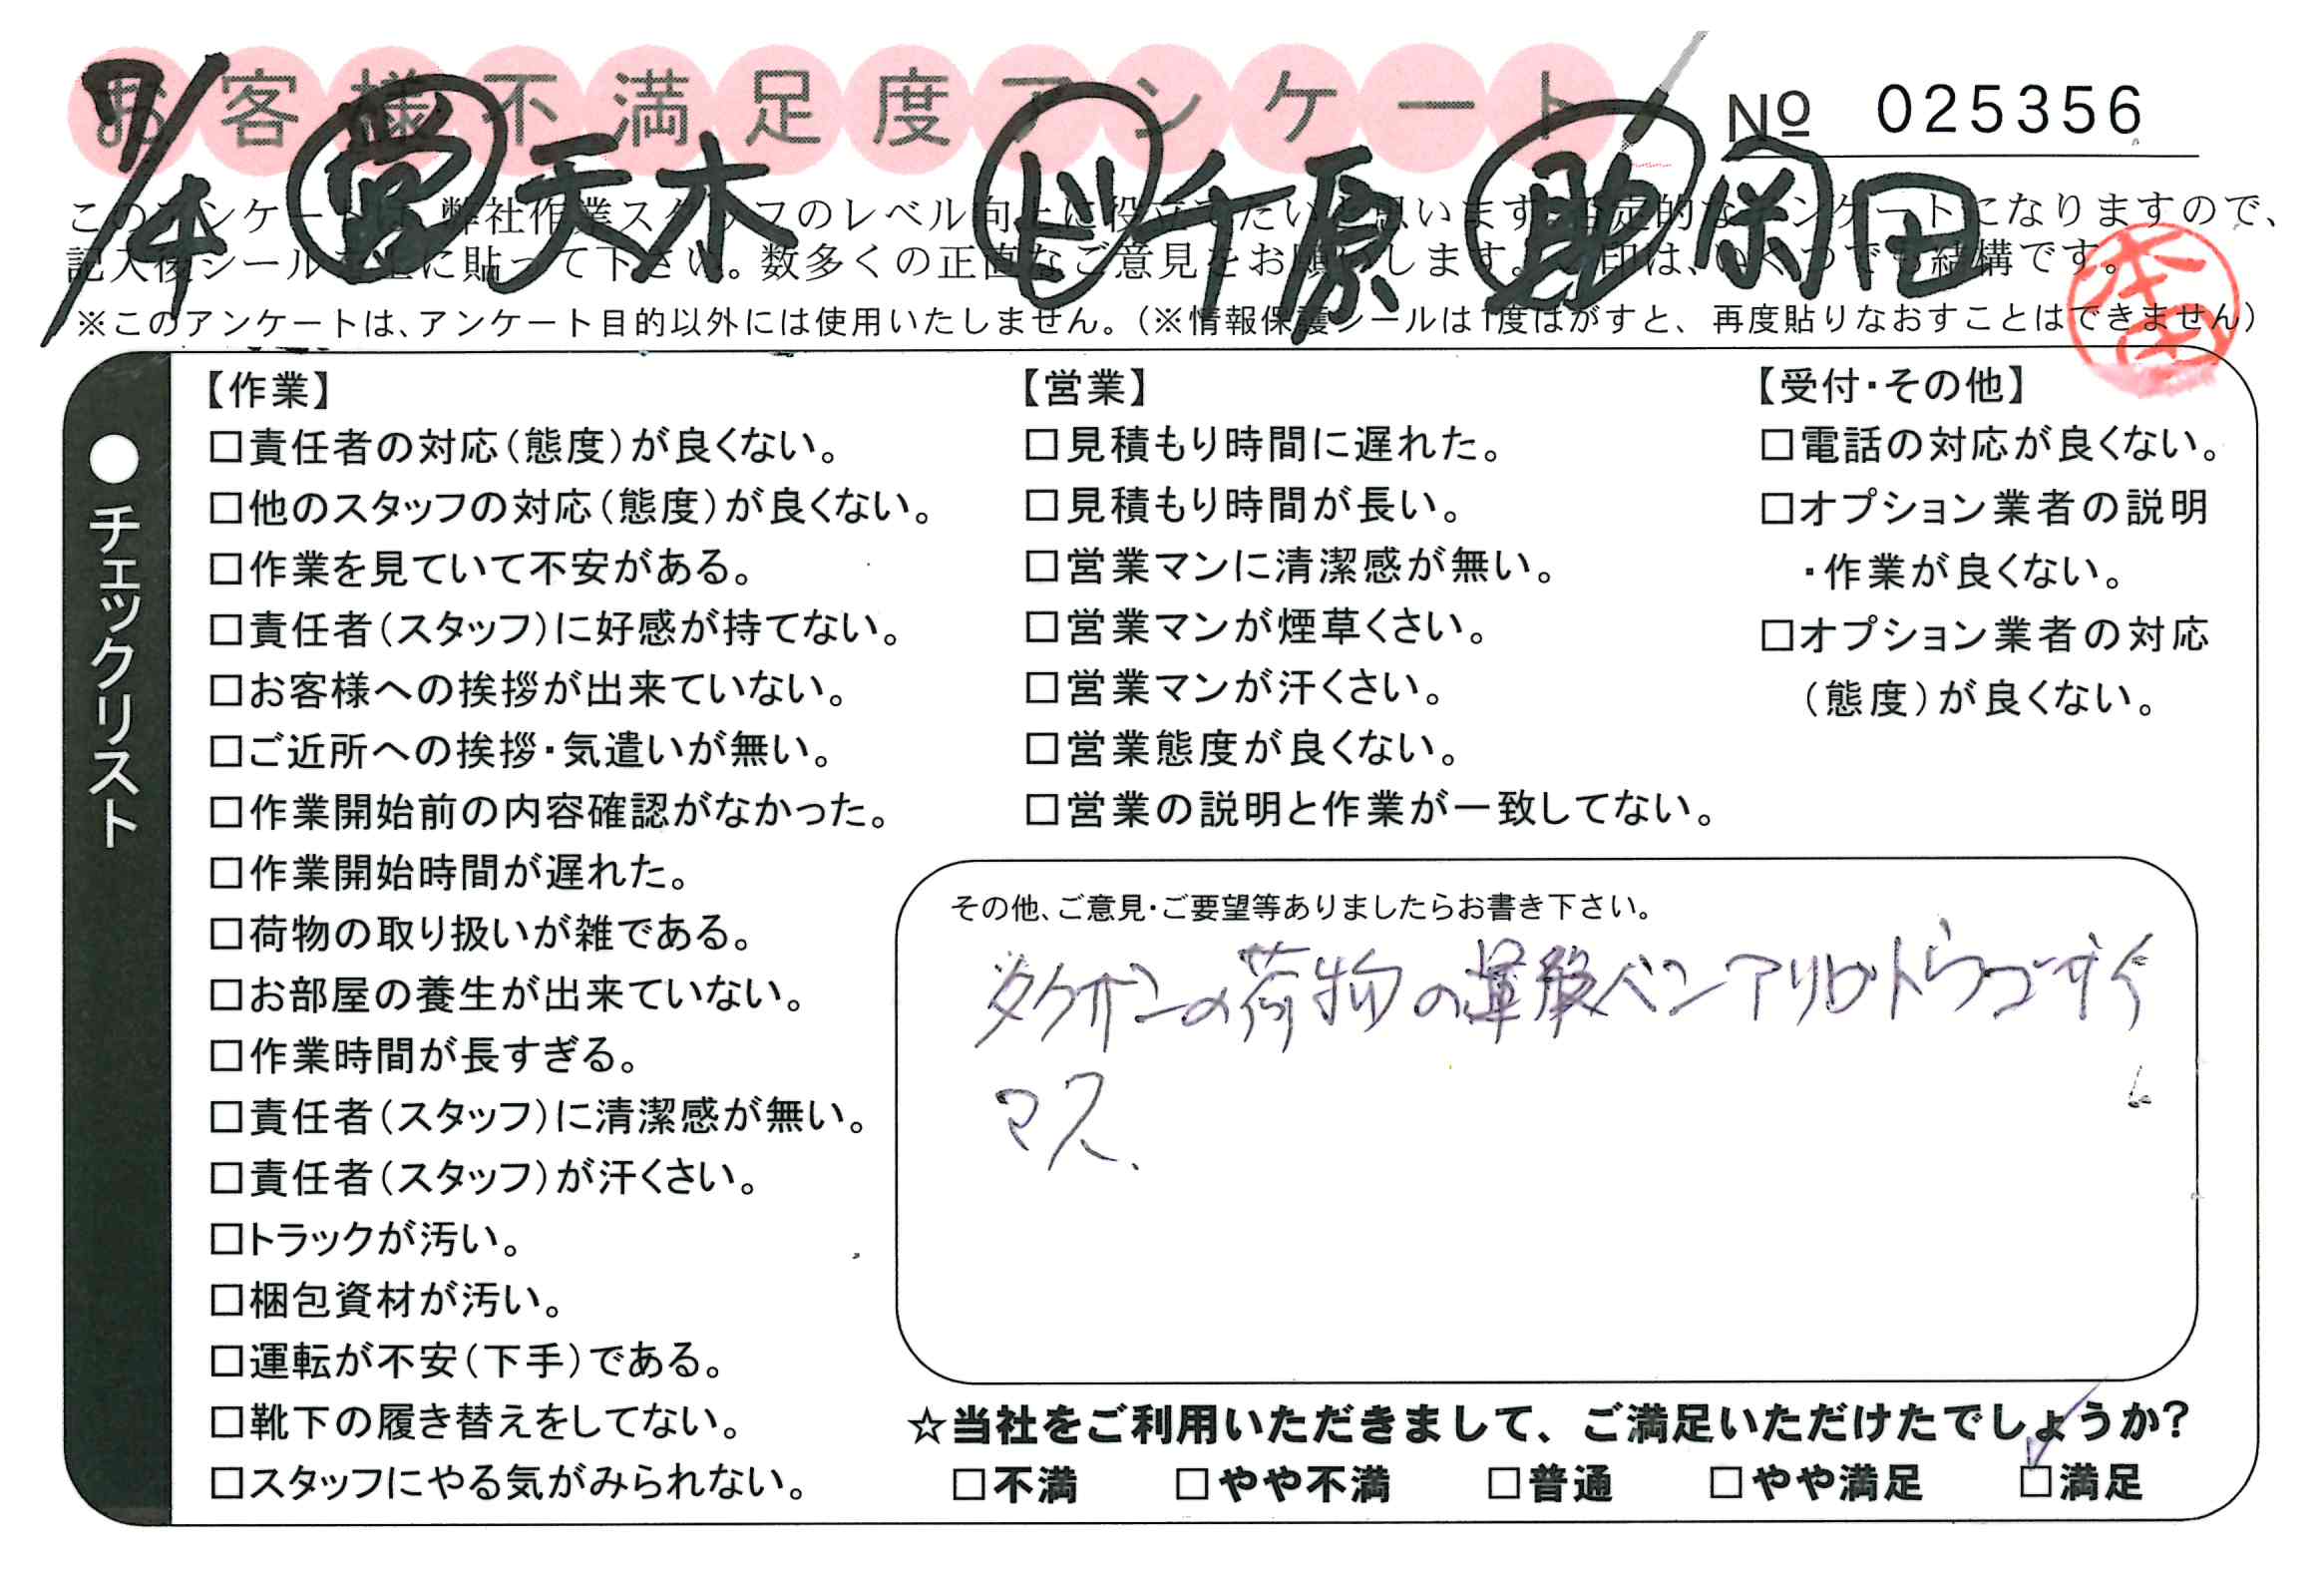 お客様不満足度アンケート
No 025356
7/4 営 天木 ド 千原 助 岡田
このアンケートは、弊社作業スタッフのレベル向上に役立てたいと思います。否定的なアンケートになりますので、
記入後シールを上に貼って下さい。数多くの正直なご意見をお願いします。 印は、いくつでも結構です。
※このアンケートは、アンケート目的以外には使用いたしません。(※情報保護シールは1度はがすと、再度貼りなおすことはできません)
本田
●チェックリスト
【作業】
□責任者の対応(態度)が良くない。
□他のスタッフの対応(態度)が良くない。
□作業を見ていて不安がある。
□責任者(スタッフ)に好感が持てない。
□お客様への挨拶が出来ていない。
□ご近所への挨拶・気遣いが無い。
□作業開始前の内容確認がなかった。
□作業開始時間が遅れた。
□荷物の取り扱いが雑である。
□お部屋の養生が出来ていない。
□作業時間が長すぎる。
□責任者(スタッフ)に清潔感が無い。
□責任者(スタッフ)が汗くさい。
□トラックが汚い。
□梱包資材が汚い。
□運転が不安(下手)である。
□靴下の履き替えをしてない。
□スタッフにやる気がみられない。
【営業】
□見積もり時間に遅れた。
□見積もり時間が長い。
□営業マンに清潔感が無い。
□営業マンが煙草くさい。
□営業マンが汗くさい。
□営業態度が良くない。
□営業の説明と作業が一致してない。
【受付・その他】
□電話の対応が良くない。
□オプション業者の説明
・作業が良くない。
□オプション業者の対応
(態度)が良くない。
その他、ご意見・ご要望等ありましたらお書き下さい。
の荷物の運搬
マス、
☆当社をご利用いただきまして、ご満足いただけたでしょうか?
□不満 □やや不満 □普通 □やや満足 ☑満足